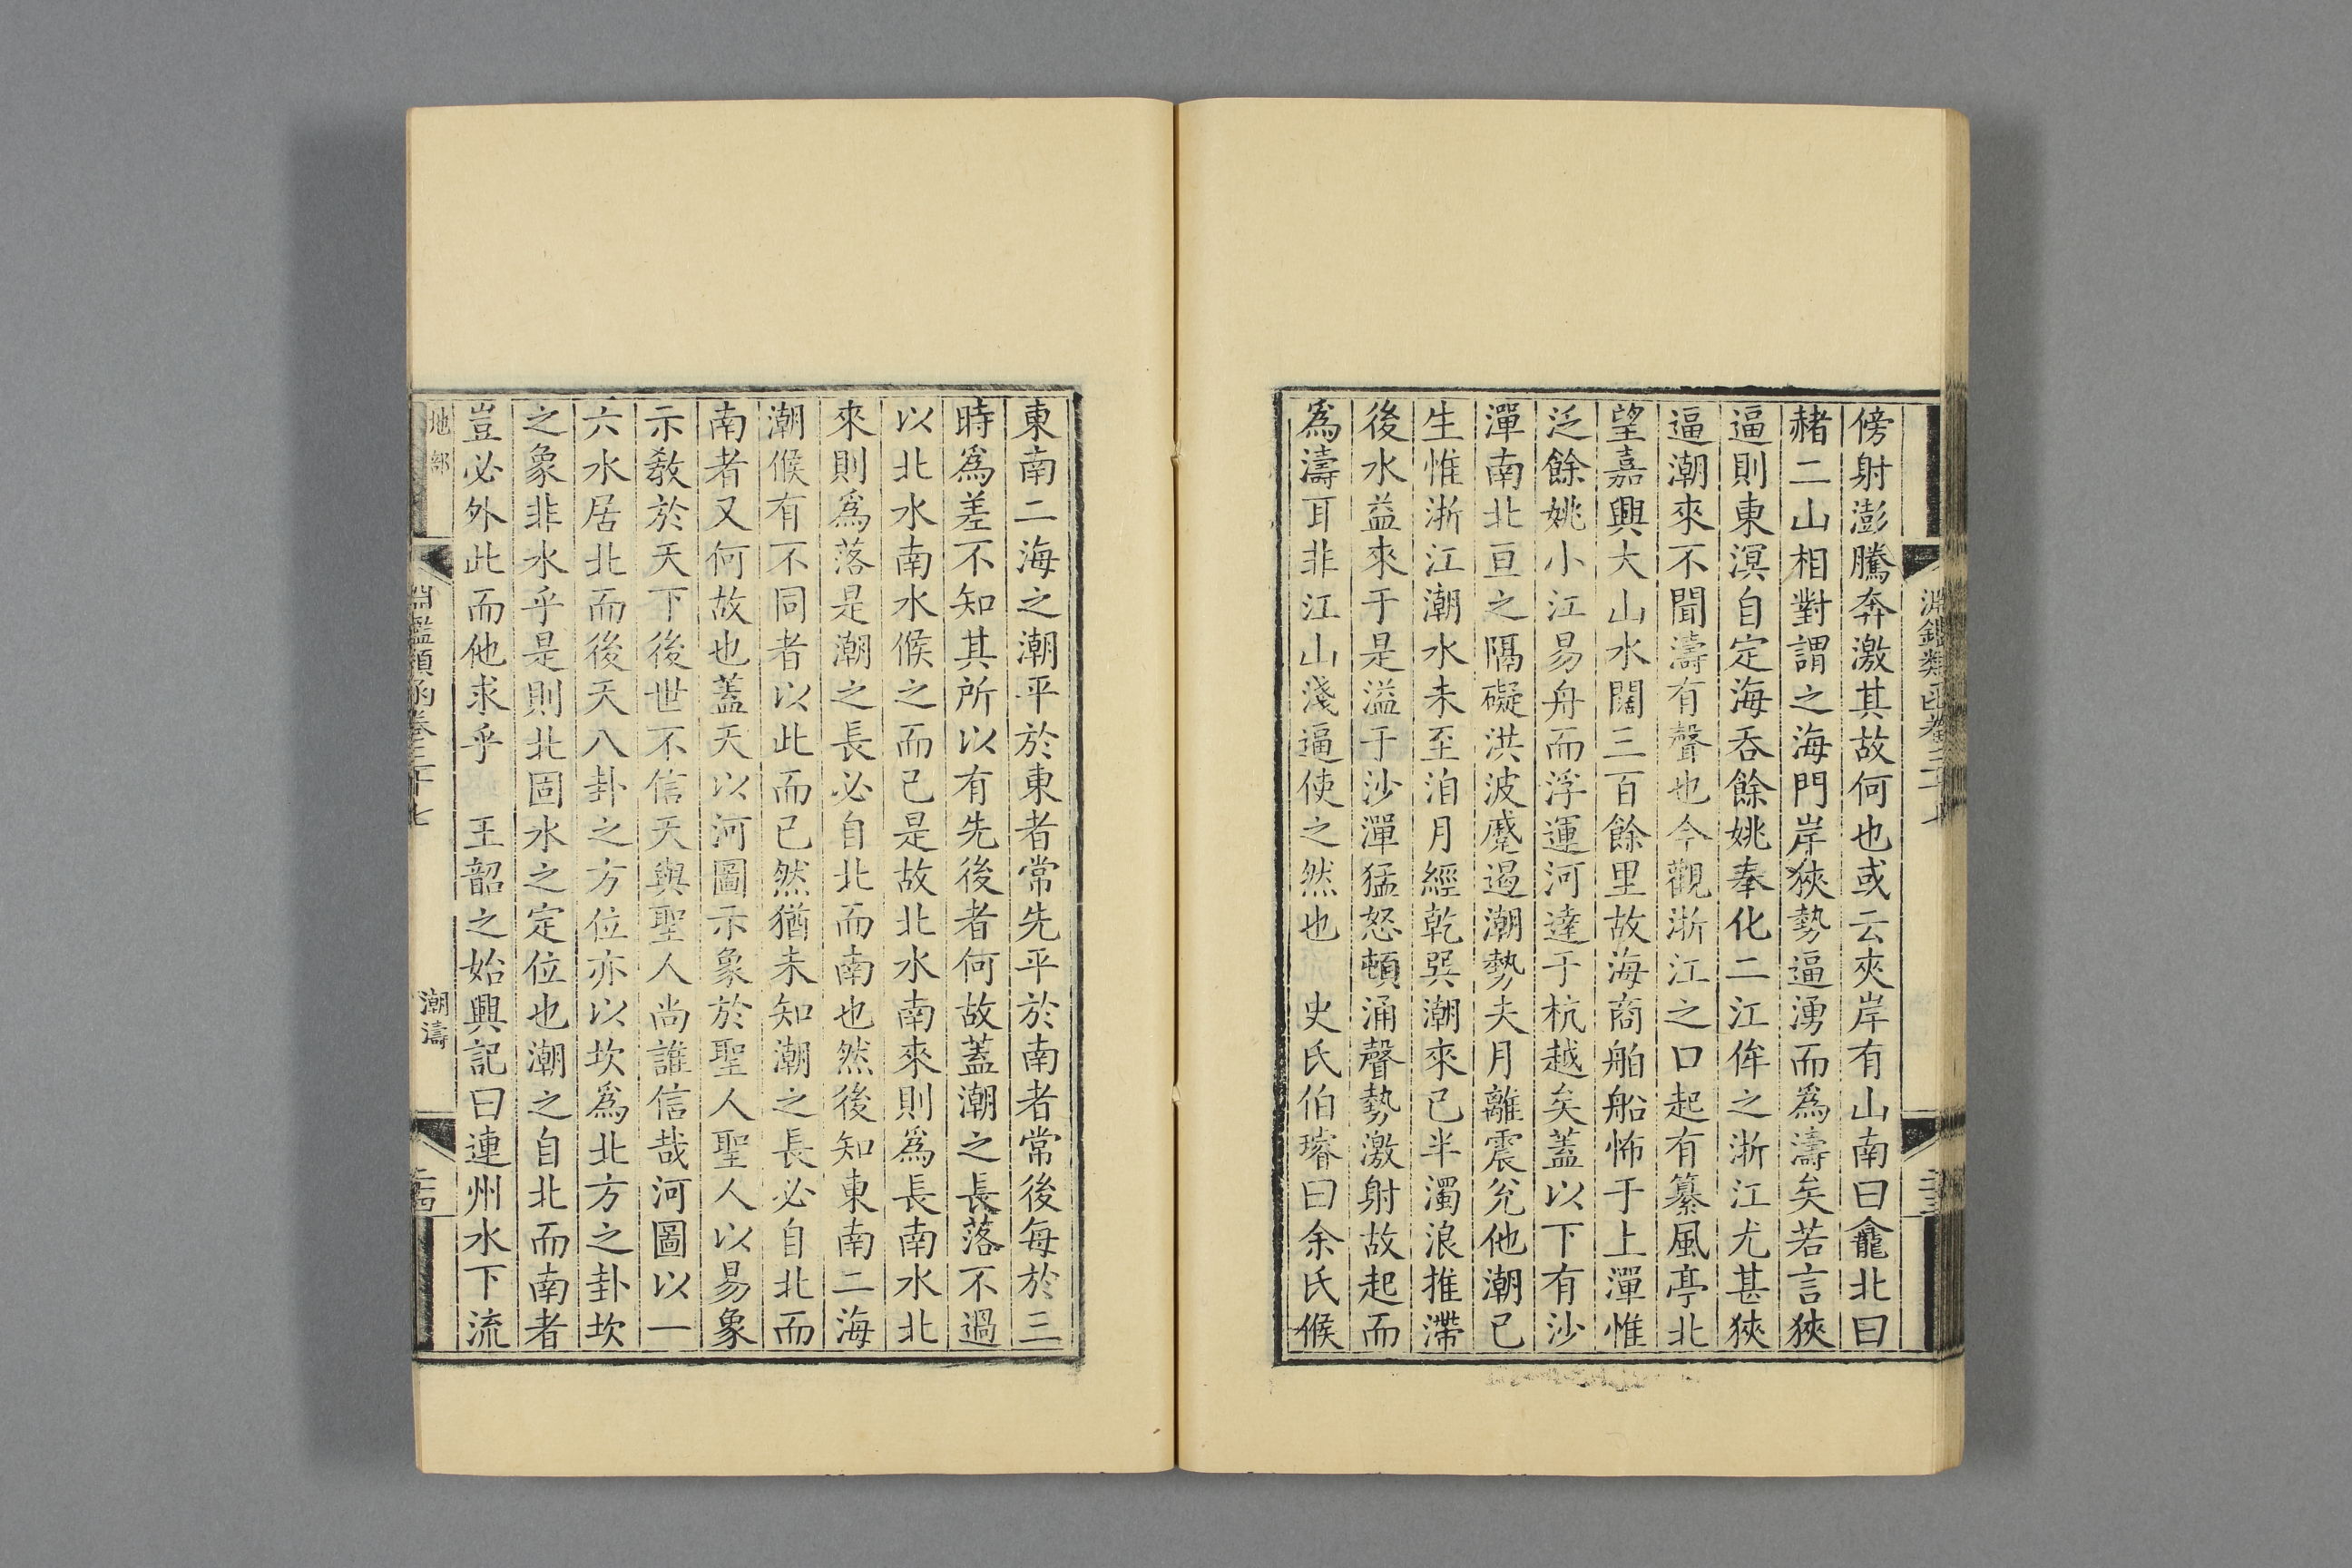 傍射澎騰奔激其故何也或云夾岸有山南曰龕北曰
赭二山相對謂之海門岸狹勢逼湧而爲濤矣若言狹
逼則東溟自定海吞餘姚奉化二江侔之浙江尤甚狹
逼潮來不聞濤有聲也今觀浙江之口起有纂風亭北
望嘉興大山水闊三百餘里故海商舶船怖于上潬惟
泛餘姚小江易舟而浮運河達于杭越矣蓋以下有沙
潬南北亘之隔礙洪波蹙遏潮勢夫月離震兊他潮已
生惟浙江潮水未至洎月經乾巽潮來已半濁浪推滯
後水益來于是溢于沙潬猛怒頓涌聲勢激射故起而
爲濤耳非江山淺逼使之然也 史氏伯璿曰余氏候
淵鑑類函卷三十七
東南二海之潮平於東者常先平於南者常後每於三
時爲差不知其所以有先後者何故蓋潮之長落不過
以北水南水候之而已是故北水南來則爲長南水北
來則爲落是潮之長必自北而南也然後知東南二海
潮候有不同者以此而已然猶未知潮之長必自北而
南者又何故也蓋天以河圖示象於聖人聖人以易象
示教於天下後世不信天與聖人尚誰信哉河圖以一
六水居北而後天八卦之方位亦以坎爲北方之卦坎
之象非水乎是則北固水之定位也潮之自北而南者
豈必外此而他求乎 王韶之始興記曰連州水下流
地部
淵鑑類函卷三十七
潮濤